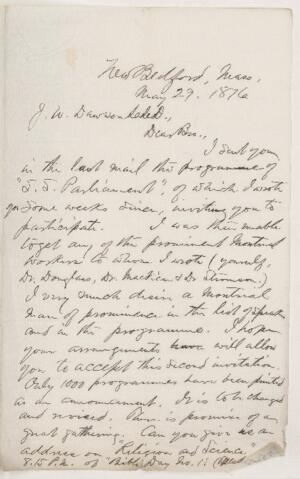 New Bedford, Mass,
May 29. 1876
J. W. Dawson
Dear Bro.,
I sent you
in the last mail the programme of
"S. S. Parliament", of which I wrote
you some weeks since, inviting you to
participate. I was then unable
to get any of the prominent Montreal
workers to whom I wrote (yourself,
Dr. Douglass, Dr. MacVicar & Dr. Stevenson.)
I very much desire a Montreal
man of prominence in the list of speakers
and in the programme. I hope
your arrangements will allow
you to accept this second invitation.
Only 1000 programmes have been printed
as an announcement. It is to be changed
and revised. There is promise of a
great gathering. Can you give us an
address on "Religion and Science,"
8.15 P.M. of "Bible Day No. 1"